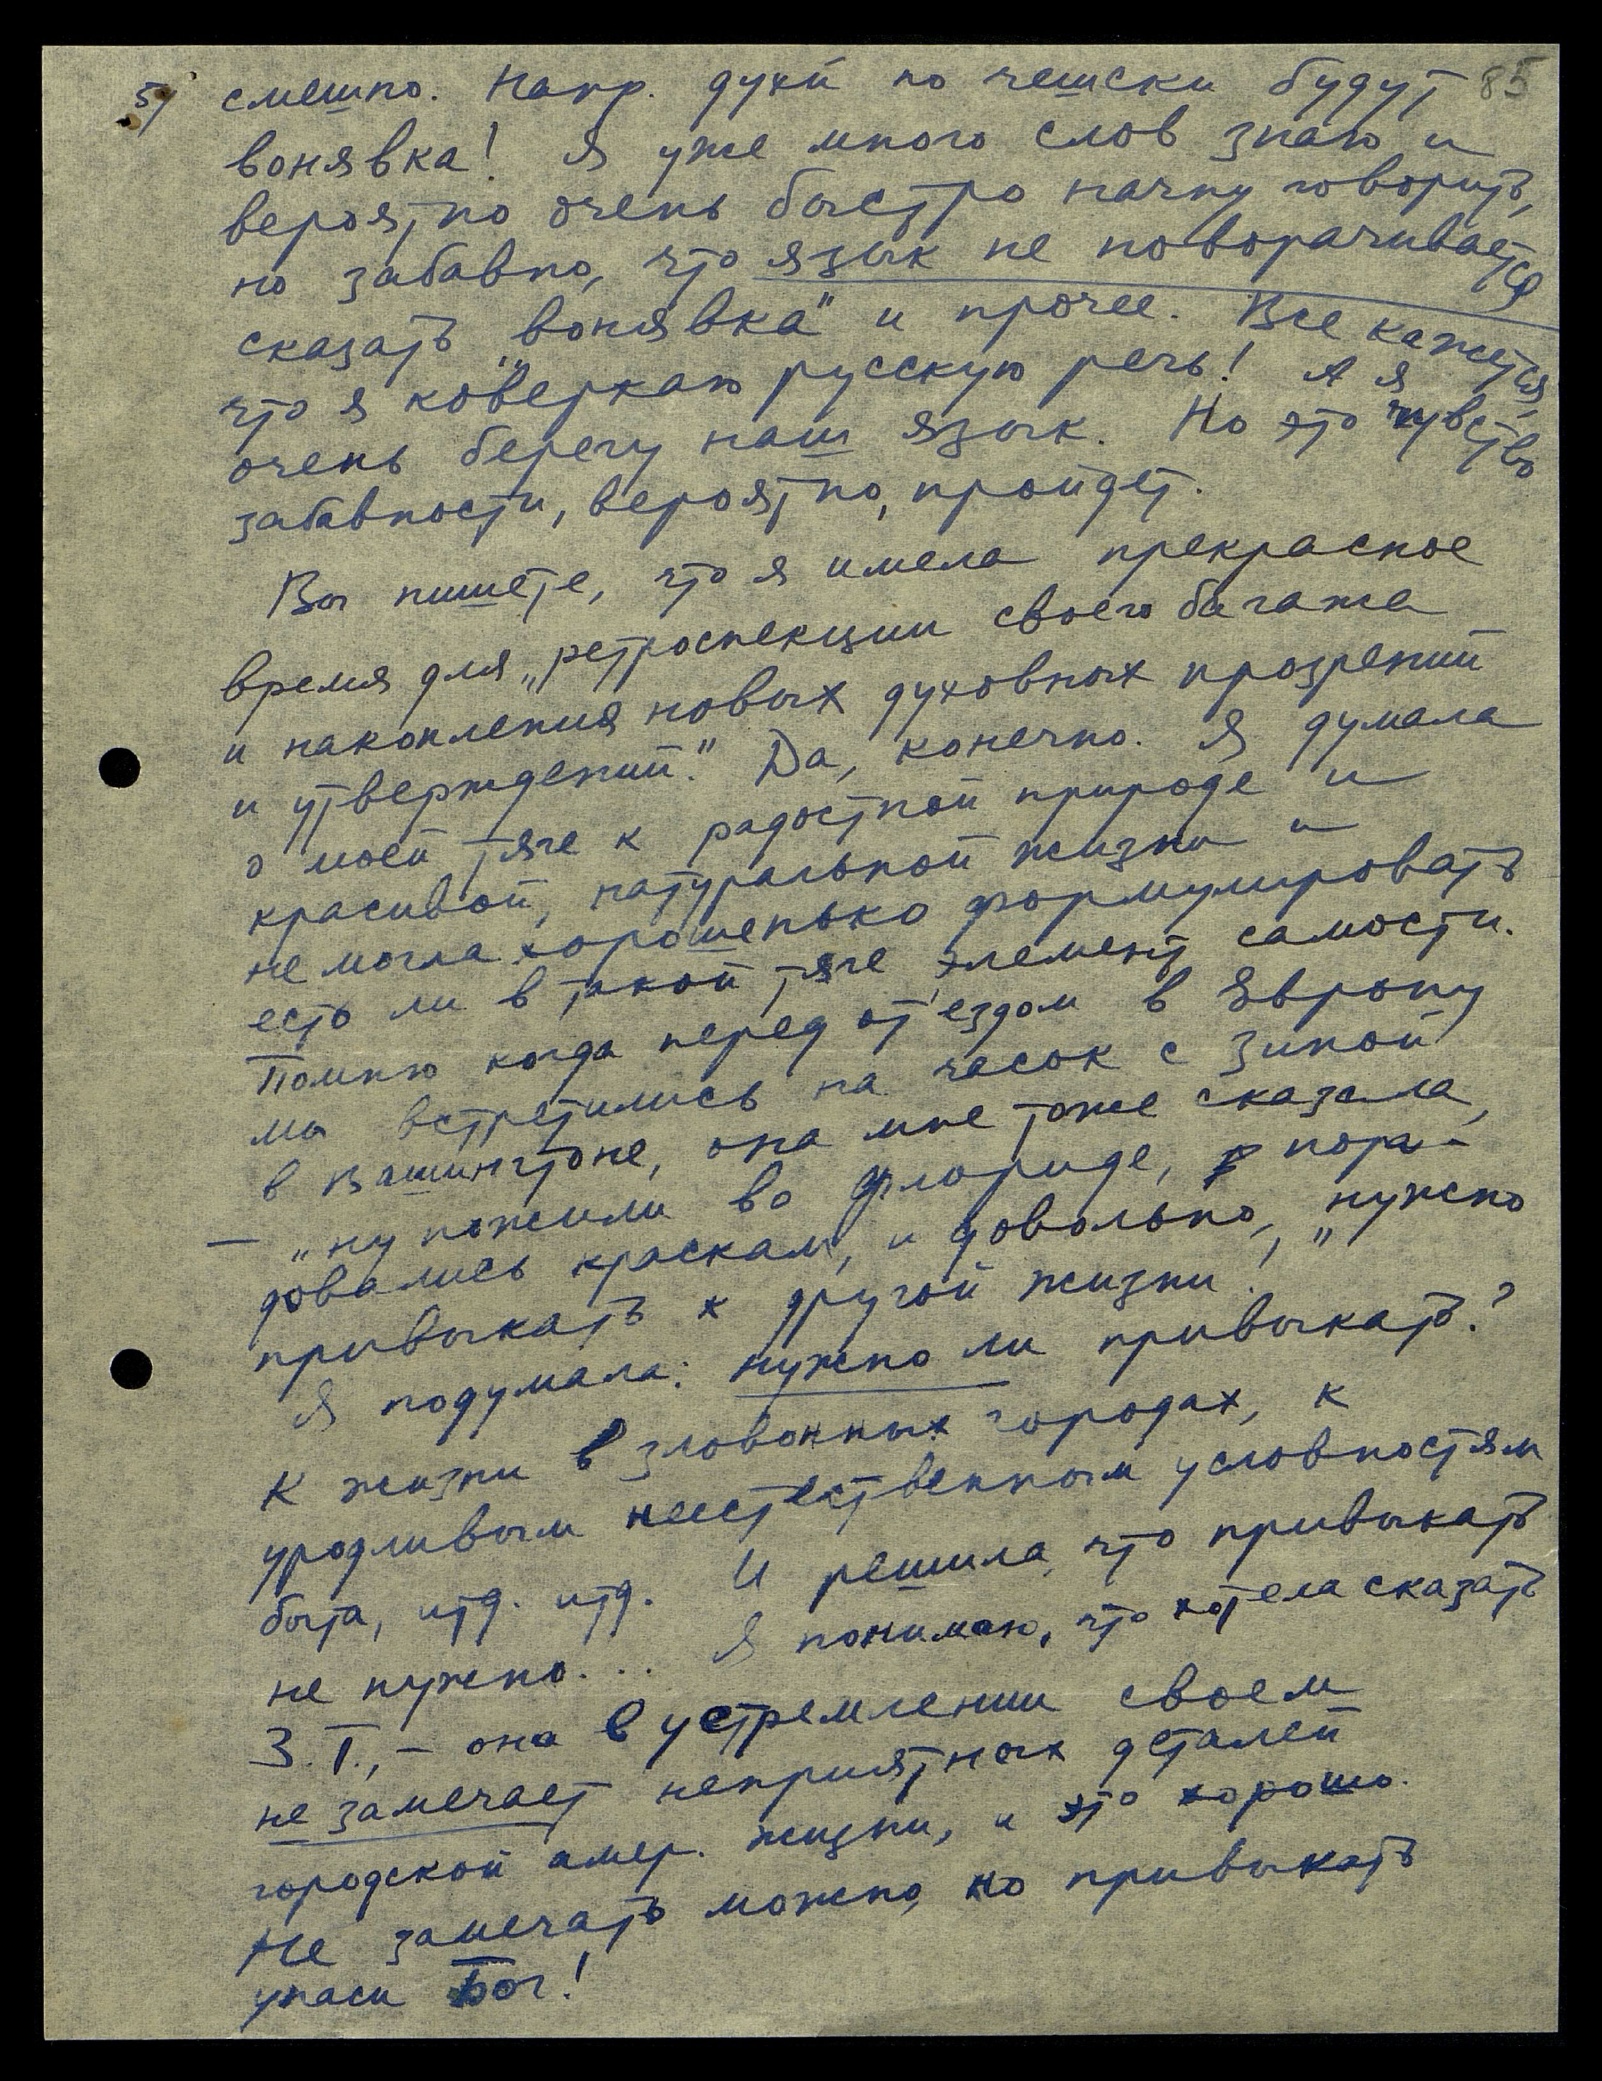 5) смешно. Напр. духи по чешски будут 85
вонявка! Я уже много слов знаю и
вероятно очень быстро начну говорить,
но забавно, что язык не поворачивается
сказать „вонявка" и прочее. Все кажется,
что я коверкаю русскую речь! А я
очень берегу наш язык. Но это чувство
забавности, вероятно, пройдет.
Вы пишете, что я имела прекрасное
время для „ретроспекции своего багажа
и накопления новых духовных прозрений
и утверждений." Да, конечно. Я думала
о моей тяге к радостной природе и
красивой, натуральной жизни и
не могла хорошенько формулировать
есть ли в такой тяге элемент самости.
Помню когда перед от'ездом в Европу
мы встретились на часок с Зиной
в Вашингтоне, она мне тоже сказала,
— „ну пожили во Флориде, пора-
довались краскам, и довольно, „нужно
привыкать к другой жизни!
Я подумала: нужно ли привыкать?
К жизни в зловонных городах, к
уродливым неестественным условностям
быта, итд. итд. И решила, что привыкать
не нужно... Я понимаю, что хотела сказать
З.Г., – она в устремлении своем
не замечает неприятных деталей
городской амер. жизни, и это хорошо.
Не замечать можно, но привыкать
упаси Бог!